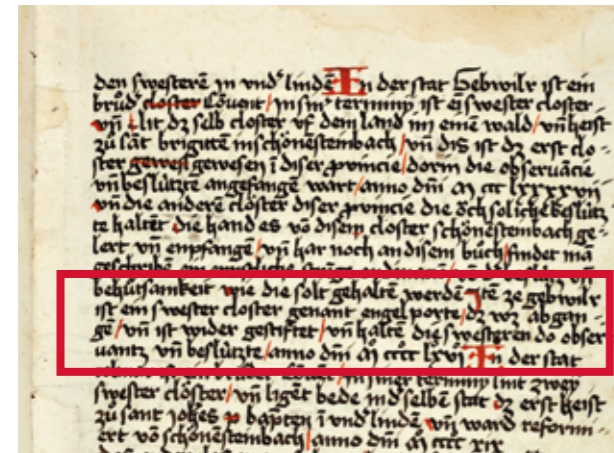 den swesterē in vndʾ lindē In der stat Gebwilr ist ein
brůdʾ closter Cōuent / in sinʾ terminy ist ei swester closter
vn̄ lit dz selb closter vf dem land in einē wald / vn̄ heist
zů sāt brigittē in schönēsteinbach / vn̄ dis ist dz erst clo-
ster gewesen gewesen ī diser prouincie / dorin die obseruācie
vn̄ beslützte angefangē wart / anno dn̄i M ccc lxxxxvii
vn̄ die anderē clöster diser prouincie die öch soliche beslütz
te haltēt die hand es vō disem closter schönēsteinbach ge-
lert vn̄ empfangē / vn̄ har noch an disem bůch findet mā
geschribē
behůtsamkeit wie die solt gehaltē werdē Itē ze gebwilr
ist ein swester closter genant engelporte / dz wz abgan-
gē / vn̄ ist wider gestiftet / vn̄ haltē die swesteren do obser
uantz vn̄ beslützte / anno dn̄i M cccc lxvi In der stat
in siner terminy lint zwey
swester clöster / vn̄ ligēt bede in dʾ selbē stat dz erst heist
zů sant iohēs baptēn ī vndʾ lindē vn̄ ward reformi-
ert vō schönēsteinbach / anno dn̄i M cccc xix